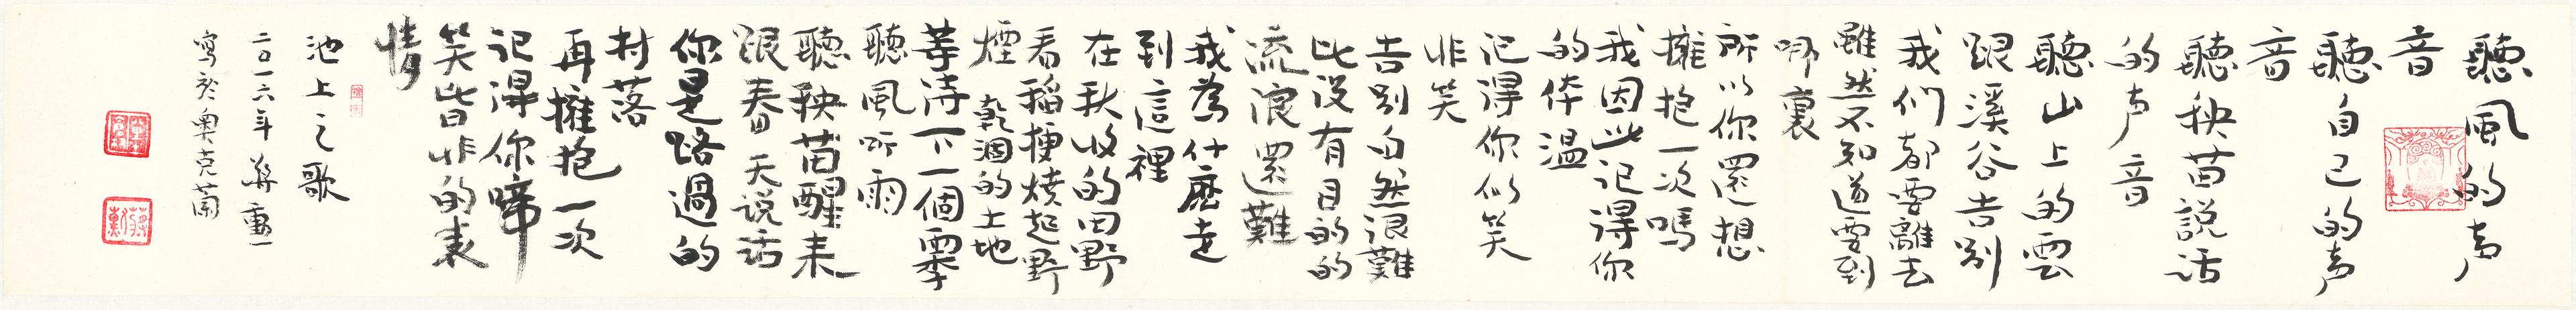 聽風的声
音
聽自己的声
音
聽秧苗說話
的声音
聽山上的雲
跟溪谷告别
我们都要離去
雖然不知道要到
哪裏
所以你還想
擁抱一次嗎
我因此記得你
的体溫
記得你似笑
非笑
告别自然很難
比没有目的的
流浪還難
我為什麼走
到這裡
在秋收的田野
看稻梗燒起野
煙 乾涸的土地
等待下一個雨季
聽風听雨
聽秧苗醒来
跟春天说话
你是路過的
村落
再擁抱一次
記得你啼
笑皆非的表
情
池上之歌
二〇一六年 蔣勳
寫於奧克蘭
蔣勳